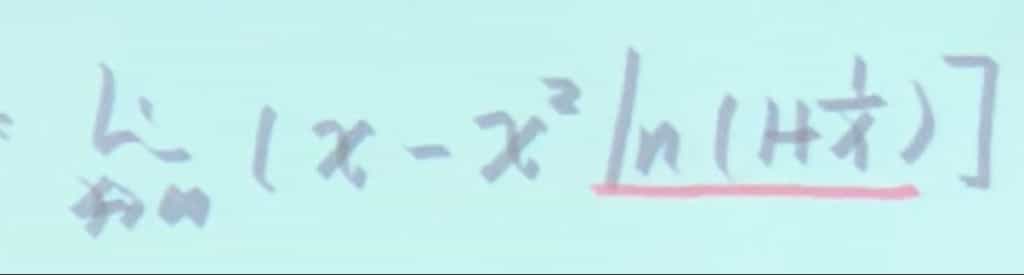 = lim x→∞ [x - x² ln(1+1/x)]